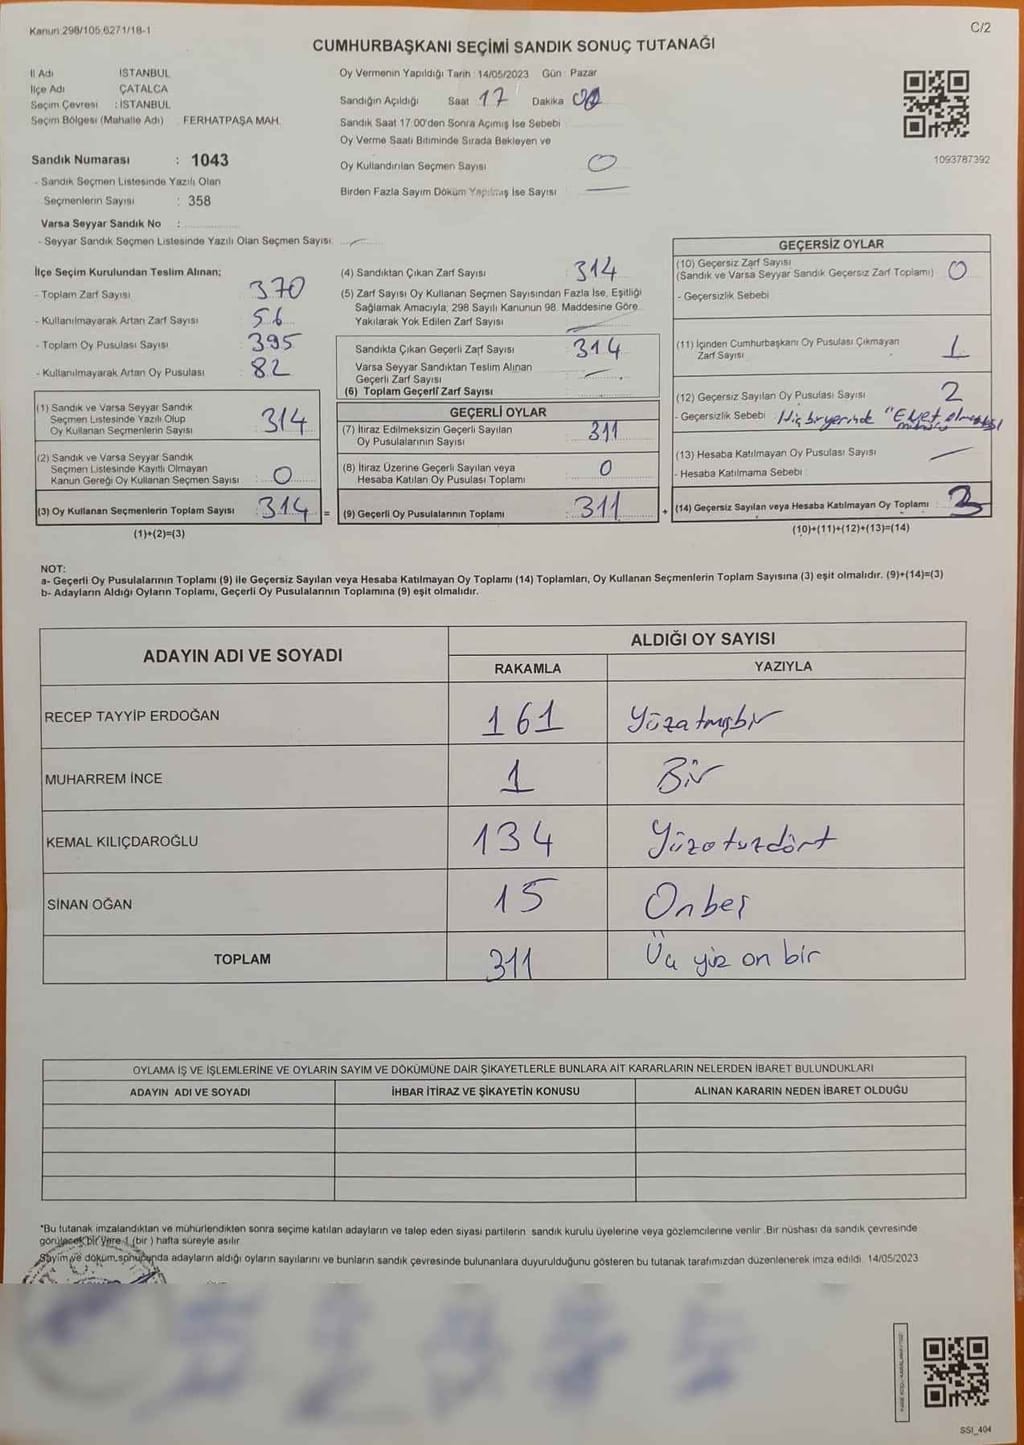 Kanun 298/105,6271/18-1
C/2
CUMHURBAŞKANI SEÇİMİ SANDIK SONUÇ TUTANAĞI
İl Adı İSTANBUL
İlçe Adı ÇATALCA
Seçim Çevresi : İSTANBUL
Seçim Bölgesi (Mahalle Adı) FERHATPAŞA MAH.
Oy Vermenin Yapıldığı Tarih : 14/05/2023 Gün : Pazar
Sandığın Açıldığı Saat 17 Dakika
Sandık Saat 17.00'den Sonra Açılmış İse Sebebi
Oy Verme Saati Bitiminde Sırada Bekleyen ve
Oy Kullandırılan Seçmen Sayısı 0
Birden Fazla Sayım Döküm Yapılmış İse Sayısı —
1093787392
Sandık Numarası : 1043
- Sandık Seçmen Listesinde Yazılı Olan
Seçmenlerin Sayısı : 358
Varsa Seyyar Sandık No :
- Seyyar Sandık Seçmen Listesinde Yazılı Olan Seçmen Sayısı:
İlçe Seçim Kurulundan Teslim Alınan;
- Toplam Zarf Sayısı 370
- Kullanılmayarak Artan Zarf Sayısı 56
- Toplam Oy Pusulası Sayısı 395
- Kullanılmayarak Artan Oy Pusulası 82
(1) Sandık ve Varsa Seyyar Sandık
Seçmen Listesinde Yazılı Olup
Oy Kullanan Seçmenlerin Sayısı 314
(2) Sandık ve Varsa Seyyar Sandık
Seçmen Listesinde Kayıtlı Olmayan
Kanun Gereği Oy Kullanan Seçmen Sayısı : 0
(3) Oy Kullanan Seçmenlerin Toplam Sayısı : 314 =
(1)+(2)=(3)
(4) Sandıktan Çıkan Zarf Sayısı 314
(5) Zarf Sayısı Oy Kullanan Seçmen Sayısından Fazla İse, Eşitliği
Sağlamak Amacıyla, 298 Sayılı Kanunun 98. Maddesine Göre
Yakılarak Yok Edilen Zarf Sayısı
Sandıkta Çıkan Geçerli Zarf Sayısı 314
Varsa Seyyar Sandıktan Teslim Alınan
Geçerli Zarf Sayısı —
(6) Toplam Geçerli Zarf Sayısı
GEÇERLİ OYLAR
(7) İtiraz Edilmeksizin Geçerli Sayılan
Oy Pusulalarının Sayısı 311
(8) İtiraz Üzerine Geçerli Sayılan veya
Hesaba Katılan Oy Pusulası Toplamı 0
(9) Geçerli Oy Pusulalarının Toplamı : 311 +
GEÇERSİZ OYLAR
(10) Geçersiz Zarf Sayısı
(Sandık ve Varsa Seyyar Sandık Geçersiz Zarf Toplamı) : 0
- Geçersizlik Sebebi
(11) İçinden Cumhurbaşkanı Oy Pusulası Çıkmayan
Zarf Sayısı 1
(12) Geçersiz Sayılan Oy Pusulası Sayısı 2
- Geçersizlik Sebebi Hiç bir yerinde "Evet mührü olmaması
(13) Hesaba Katılmayan Oy Pusulası Sayısı —
- Hesaba Katılmama Sebebi
(14) Geçersiz Sayılan veya Hesaba Katılmayan Oy Toplamı : 3
(10)+(11)+(12)+(13)=(14)
NOT:
a- Geçerli Oy Pusulalarının Toplamı (9) ile Geçersiz Sayılan veya Hesaba Katılmayan Oy Toplamı (14) Toplamları, Oy Kullanan Seçmenlerin Toplam Sayısına (3) eşit olmalıdır. (9)+(14)=(3)
b- Adayların Aldığı Oyların Toplamı, Geçerli Oy Pusulalarının Toplamına (9) eşit olmalıdır.
ADAYIN ADI VE SOYADI
ALDIĞI OY SAYISI
RAKAMLA YAZIYLA
RECEP TAYYİP ERDOĞAN 161 Yüzatmışbir
MUHARREM İNCE 1 Bir
KEMAL KILIÇDAROĞLU 134 Yüzotuzdört
SİNAN OĞAN 15 Onbeş
TOPLAM 311 Üç yüz on bir
OYLAMA İŞ VE İŞLEMLERİNE VE OYLARIN SAYIM VE DÖKÜMÜNE DAİR ŞİKAYETLERLE BUNLARA AİT KARARLARIN NELERDEN İBARET BULUNDUKLARI
ADAYIN ADI VE SOYADI İHBAR İTİRAZ VE ŞİKAYETİN KONUSU ALINAN KARARIN NEDEN İBARET OLDUĞU
*Bu tutanak imzalandıktan ve mühürlendikten sonra seçime katılan adayların ve talep eden siyasi partilerin sandık kurulu üyelerine veya gözlemcilerine verilir. Bir nüshası da sandık çevresinde
görülecek bir yere 1 (bir) hafta süreyle asılır
Sayım ve döküm sonucunda adayların aldığı oyların sayılarını ve bunların sandık çevresinde bulunanlara duyurulduğunu gösteren bu tutanak tarafımızdan düzenlenerek imza edildi. 14/05/2023
SSI_404